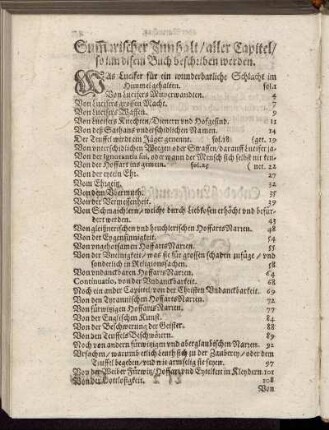 Summarischer Innhalt/ aller Capitel/
so inn disem Buch beschriben werden.
Was Lucifer für ein wunderbarliche Schlacht im
Himmel gehalten. fol.1
Von Lucifers Anverwandten. 4
Von Lucifers grossen Macht. 7
Von Lucifers Waffen. 9
Von Lucifers Knechten/ Dienern vnd Hofgesind. 11
Von deß Sathans vnderschidlichen Namen. 14
Der Teuffel wirdt ein Jäger genennt. fol.18. 19
Von vnderschidlichen Weegen oder Strassen darauff Lucifer
Von der Ignorantia sui, oder wann der Mensch sich selbst nit
Von der Hoffart ins gemein. fol.25 22
Von der eytelen Ehr. 27
Von Ehrgeitz. 32
Von dem Vbermuth. 35
Von der Vermessenheit. 39
Von Schmaichlern/ welche durch Liebkosen erhöcht vnd befür-
dert werden. 43
Von gleißnerischen vnd heuchlerischen Hoffarts Narren. 48
Von der Eygensinnigkeit. 54
Von vngehorsamen Hoffarts Narren. 55
Von der Vneinigkeit/ was sie für grossen schaden zufüge/ vnd
sonderlich in Religionssachen. 58
Von vndanckbaren Hoffarts Narren. 62
Continuatio, von der Vndanckbarkeit. 68
Noch ein ander Capittel/ von der Christen Vndanckbarkeit. 69
Von den Tyrannischen Hoffarts Narren. 72
Von fürwitzigen Hoffarts Narren. 77
Von der Englischen Kunst. 84
Von der Beschwerung der Geister. 88
Von den Teuffels Beschwörern. 89
Noch von andern fürwitzigen vnd aberglaubischen Narren. 92
Vrsachen/ warumb etlich leuth sich zu der Zauberey/ oder dem
Teuffel begeben/ vnd wie armselig sie seyen. 97
Von der Weiber Fürwitz/ Hoffart vnd Eytelkeit in Kleydern. 101
Von der Gottlosigkeit. 108
Von